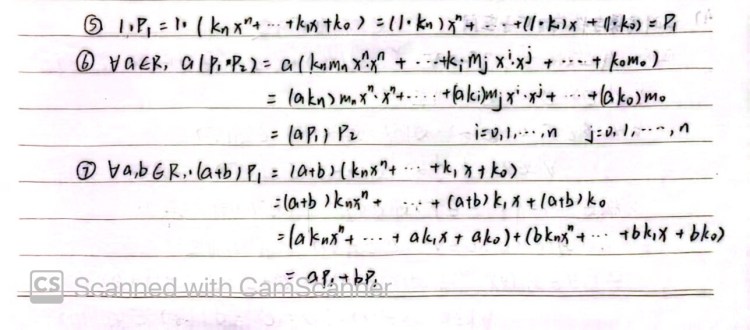 ⑤ 1·P₁ = 1·(kₙxⁿ+ ··· +k₁x+k₀) = (1·kₙ)xⁿ+ ··· +(1·k₁)x + (1·k₀) = P₁
⑥ ∀a∈R, a(P₁·P₂) = a(kₙmₙxⁿ·xⁿ + ··· +kᵢmⱼxⁱ·xʲ + ··· + k₀m₀)
= (akₙ)mₙxⁿ·xⁿ+ ··· +(akᵢ)mⱼxⁱ·xʲ+ ··· +(ak₀)m₀
= (aP₁)P₂ i=0,1,···,n j=0,1,···,n
⑦ ∀a,b∈R, (a+b)P₁ = (a+b)(kₙxⁿ+ ··· +k₁x+k₀)
=(a+b)kₙxⁿ+ ··· +(a+b)k₁x+(a+b)k₀
=(akₙxⁿ+ ··· + ak₁x + ak₀)+(bkₙxⁿ+ ··· +bk₁x + bk₀)
= aP₁+bP₁
CS Scanned with CamScanner